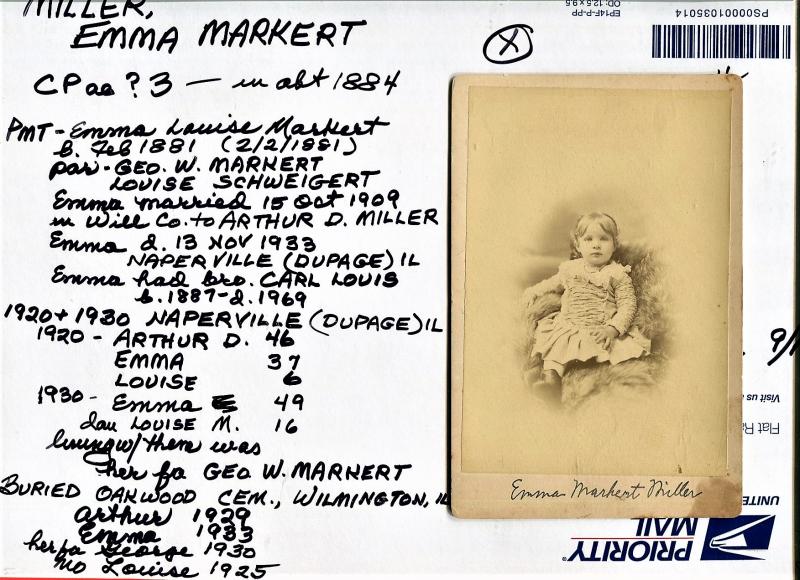 MILLER,
EMMA MARKERT
X
CP aa ? 3 — in abt 1884
PMT - Emma Louise Markert
b. Feb 1881 (2/2/1881)
par - GEO. W. MARKERT
LOUISE SCHWEIGERT
Emma married 15 Oct 1909
in Will Co. to ARTHUR D. MILLER
Emma d. 13 NOV 1933
NAPERVILLE (DUPAGE) IL
Emma had bro. CARL LOUIS
b. 1887 - d. 1969
1920 + 1930 NAPERVILLE (DUPAGE) IL
1920 - ARTHUR D. 46
EMMA 37
LOUISE 6
1930 - Emma 49
dau LOUISE M. 16
living w/ them was
her fa GEO W. MARKERT
BURIED OAKWOOD CEM., WILMINGTON, IL
Arthur 1929
Emma 1933
her fa George 1930
mo Louise 1925
Emma Markert Miller
PS00001035014
EP14F-PP
OD: 12.5 x 9.5
9/
Visit us
Flat Ra
UNITE
PRIORITY
MAIL